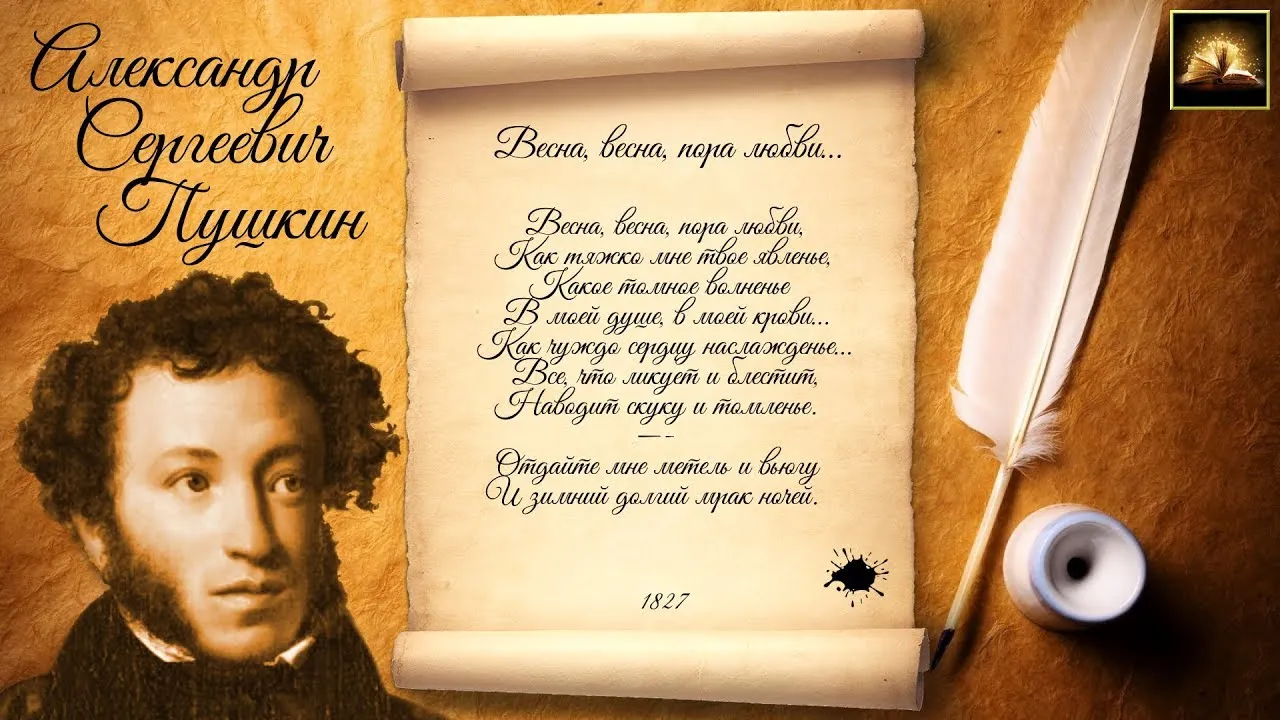 Александр
Сергеевич
Пушкин
Весна, весна, пора любви...
Весна, весна, пора любви,
Как тяжко мне твое явленье,
Какое томное волненье
В моей душе, в моей крови...
Как чуждо сердцу наслажденье...
Все, что ликует и блестит,
Наводит скуку и томленье.
— - -
Отдайте мне метель и вьюгу
И зимний долгий мрак ночей.
1827